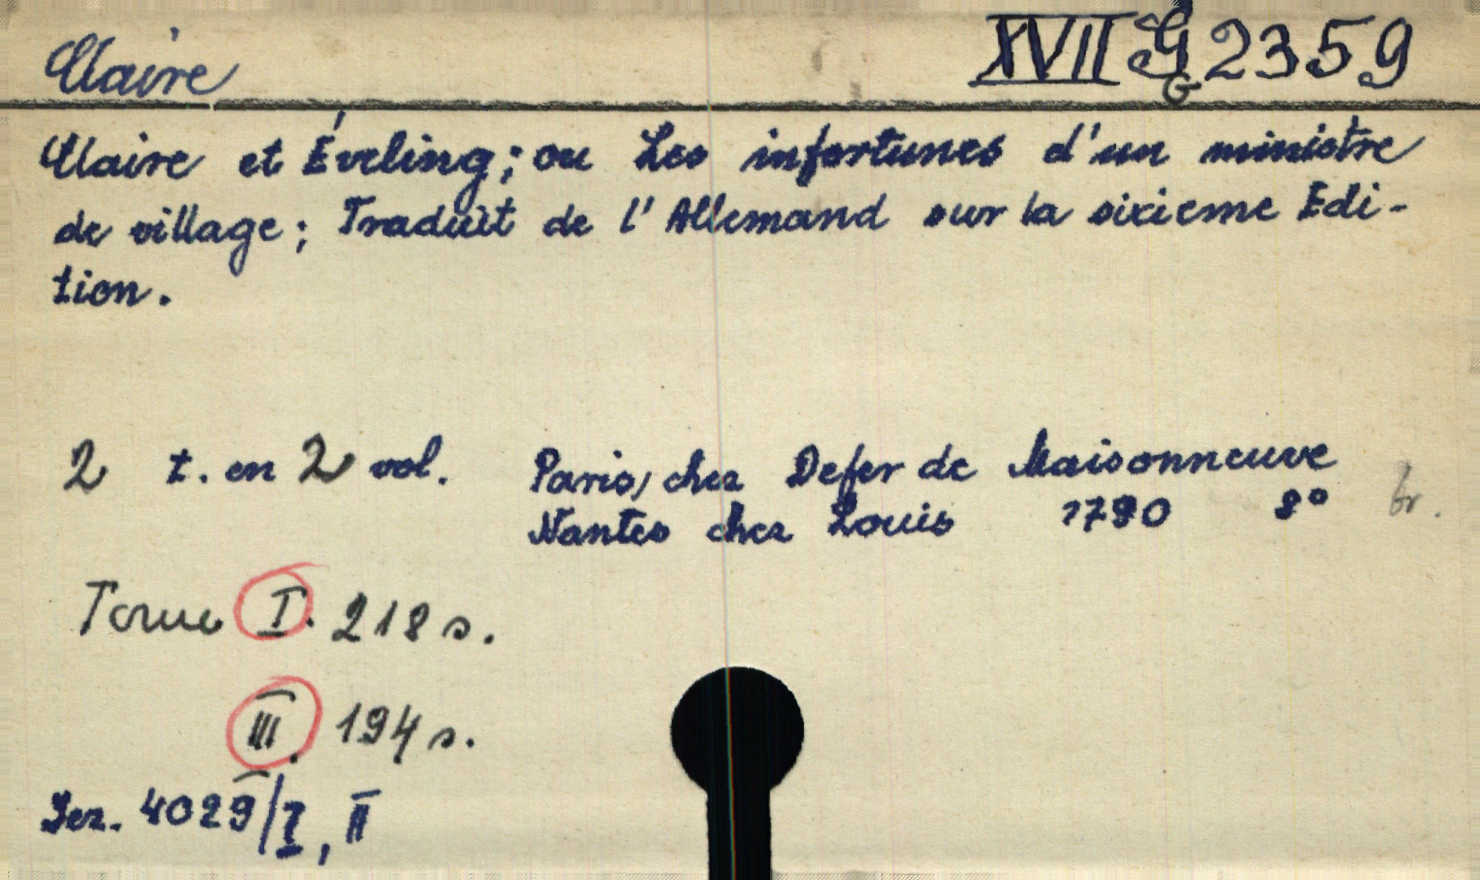 Claire
XVII G 2359
G
Claire et Éveling; ou Les infortunes d'un ministre
de village; Traduit de l'Allemand sur la sixieme Edi-
tion.
2 t. en 2 vol. Paris, chez Defer de Maisonneuve
Nantes chez Louis 1790 8° br.
Tome I. 218 s.
III. 194 s.
4029/I, II